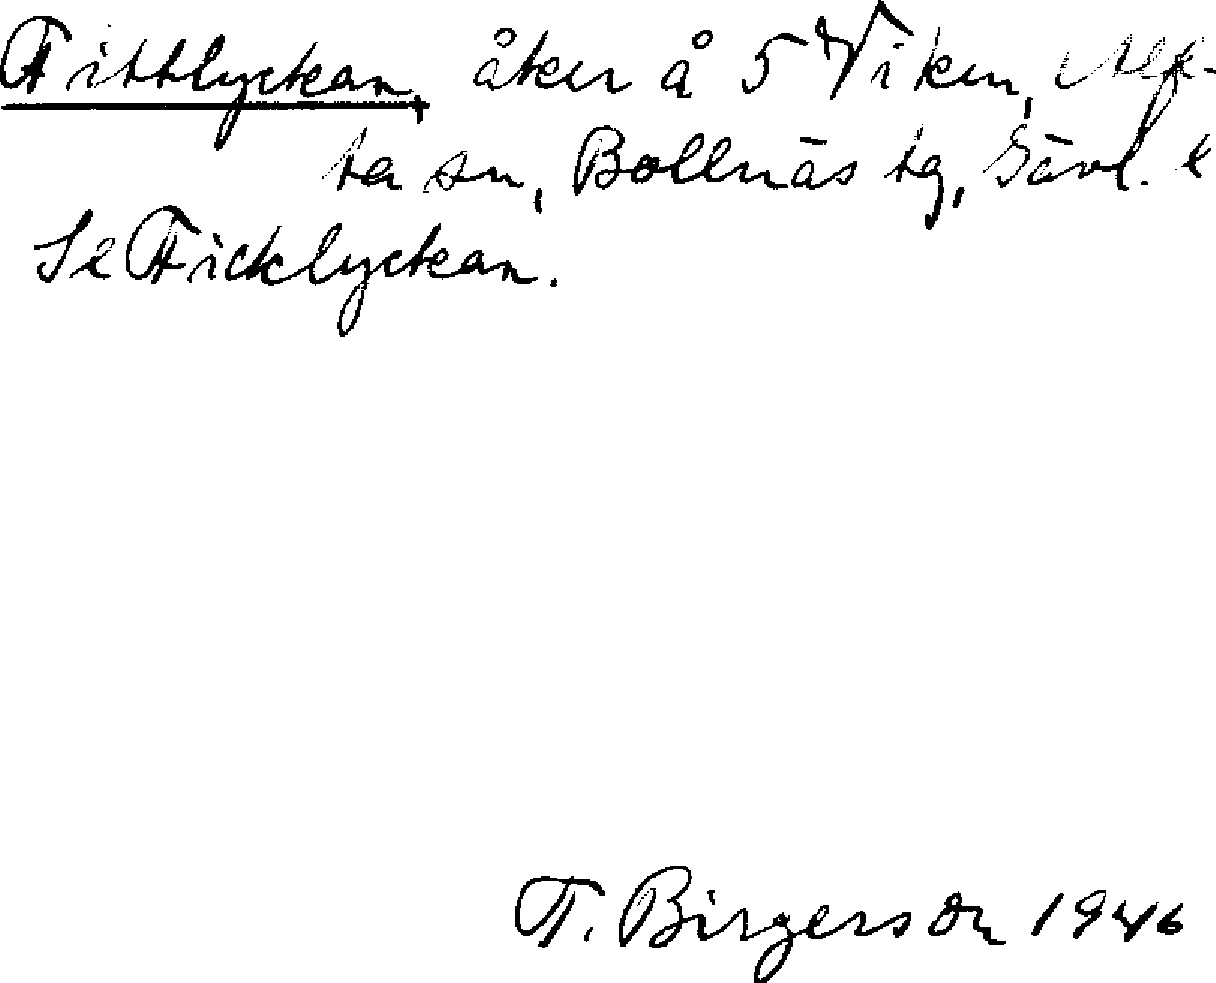 Fittlyckan, åker å 5 Viken, Alf-
ta sn, Bollnäs tg, Gävl. l
Se Ficklyckan.
F. Birgerson 1946